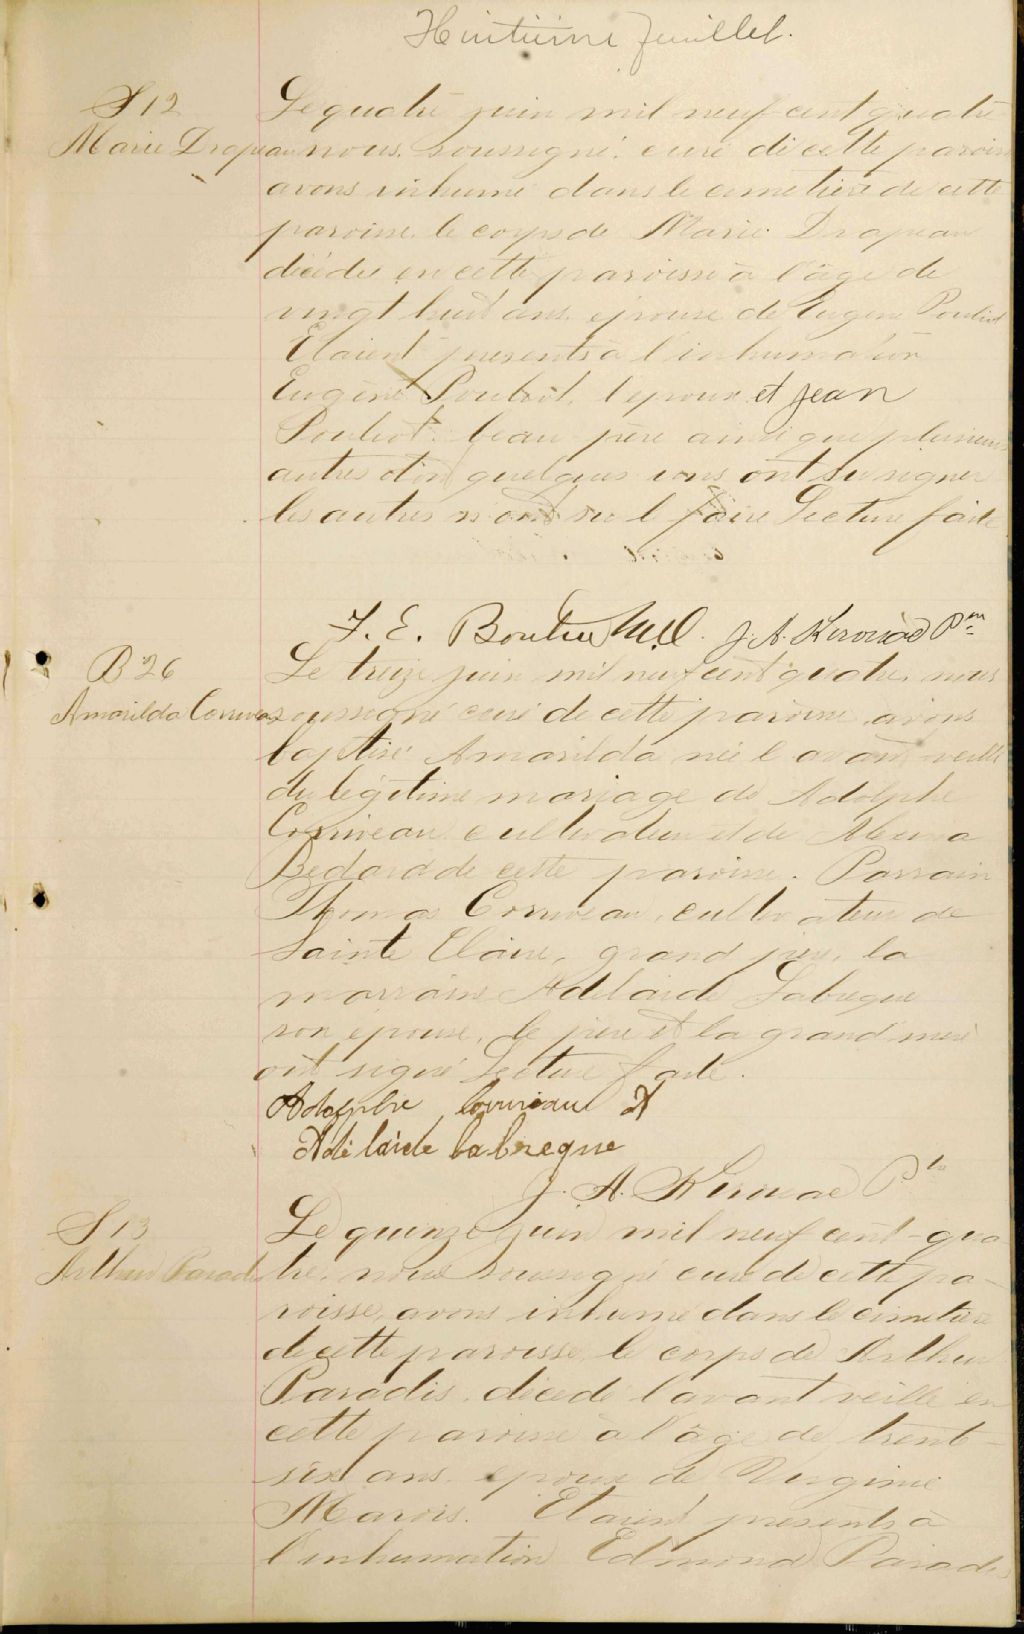 Huitième feuillet.
S 12
Marie Drapeau
Le quatre juin mil neuf cent quatre
nous soussigné curé de cette paroisse
avons inhumé dans le cimetière de cette
paroisse le corps de Marie Drapeau
décédée en cette paroisse à l'âge de
vingt huit ans, épouse de Eugène Pouliot
Etaient présents à l'inhumation
Eugène Pouliot, l'époux et Jean
Pouliot beau-père ainsi que plusieurs
autres dont quelques uns ont su signer
les autres n'ont su le faire Lecture faite
F. E. Boutin M.D. J. A. Kirouac Ptre
B 26
Amarilda Corriveau
Le treize juin mil neuf cent quatre, nous
soussigné curé de cette paroisse avons
baptisé Amarilda née l'avant-veille
du légitime mariage de Adolphe
Corriveau cultivateur et de
Bedard de cette paroisse. Parrain
Thomas Corriveau, cultivateur de
Sainte Claire, grand père, la
marraine Adelaide Labreque
son épouse, le père et la grand'mère
ont signé Lecture faite.
Adolphe Corriveau
Adélaide Labreque
J. A. Kirouac Ptre
S 13
Arthur Paradis
Le quinze juin mil neuf cent-qua
tre, nous soussigné curé de cette pa-
roisse, avons inhumé dans le cimetière
de cette paroisse le corps de Arthur
Paradis, décédé l'avant veille en
cette paroisse à l'âge de trente-
six ans époux de Virginie
Marois. Etaient présents à
l'inhumation Edmond Paradis